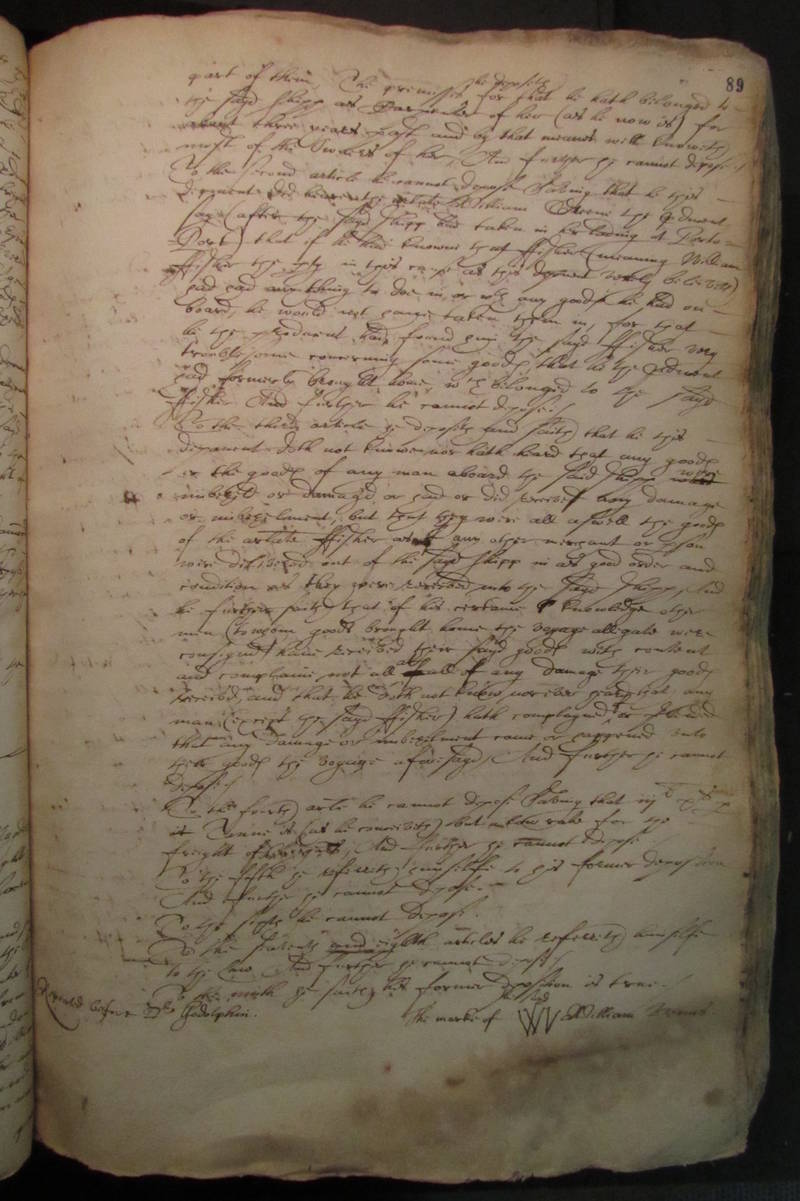 89
part of them, The premisses he deposeth for that he hath belonged to
the sayd shipp as Carpenter of her (as he now is) for
about three yeares past and by that meanes well knoweth
most of the Owners of her, And further he cannot depose./
To the second article he cannot depose Saving that he this
deponent did heare the William the Producent
say (after the sayd shipp had taken in her lading at Porto
Port) that if he had knowne that ffisher (meaning William
ffisher the party in this cause as this deponent verely beleiveth)
had had any thing to doe in or with any goods he had on
board, he would not have taken them in, for that
he the producent had found him the sayd ffisher very
troublesome concerning some goods that he the producent
had formerly brought home, which belonged to the sayd
ffisher And further he cannot depose./
To the third article he deposeth and saith that he this
deponent doth not knowe nor hath heard that any goods
or the goods of any man aboard the said shipp were
imbezeld or damag'd or had or did receive any damage
or imbezilment, but that they were all aswell the goods
of the arlate ffisher as of any other merchant or person
were delivered out of the sayd shipp in as good order and
condition as they were received into the sayd shipp, And
he further saith that of his certaine knowledge other
men (to whom goods brought home the voyage allegate were
consigned) have received their sayd goods with content
and complaine not at all of any damage their goods
received, and that he doth not know nor ever heard that any
man (except the sayd ffisher) hath complayned or
that any damage or imbezilment came or happened unto
their goods the voyage aforesayd, And further he cannot
depose./
To the fourth arle he cannot depose Saving that iij li
Tonne is (as he conceiveth) but a low rate for the
freight of And further he cannot depose
To the fifth he referreth himselfe to his former deposition
And further he cannot depose.
To the sixth he cannot depose.
To the seaventh and eighth articles he referreth himselfe
to the law And further he cannot depose
To the nineth he saith his former deposition is true./
Repeated before Dr Godolphin.
The marke of the sayd W William